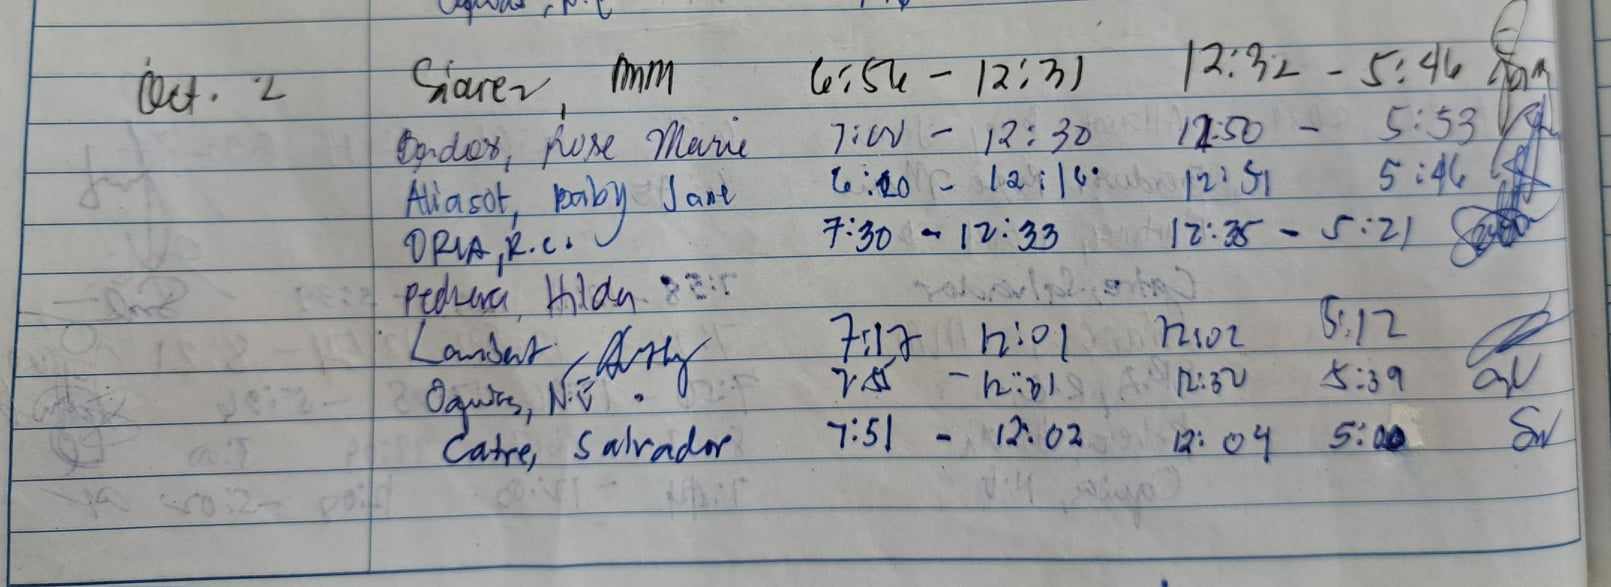 Oct. 2 Siarez, MM 6:54 - 12:31 12:32 - 5:46
Rose Marie 7:00 - 12:30 12:50 - 5:53
Aliasot, Baby Jane 6:20 - 12:16 12:51 5:46
ORIA, R.C. 7:30 - 12:33 12:35 - 5:21
Pedrera, Hilda
Lambert, 7:17 12:01 12:02 5:12
N.E. - 12:31 12:32 5:39
Catre, Salvador 7:51 - 12:02 12:04 5:00